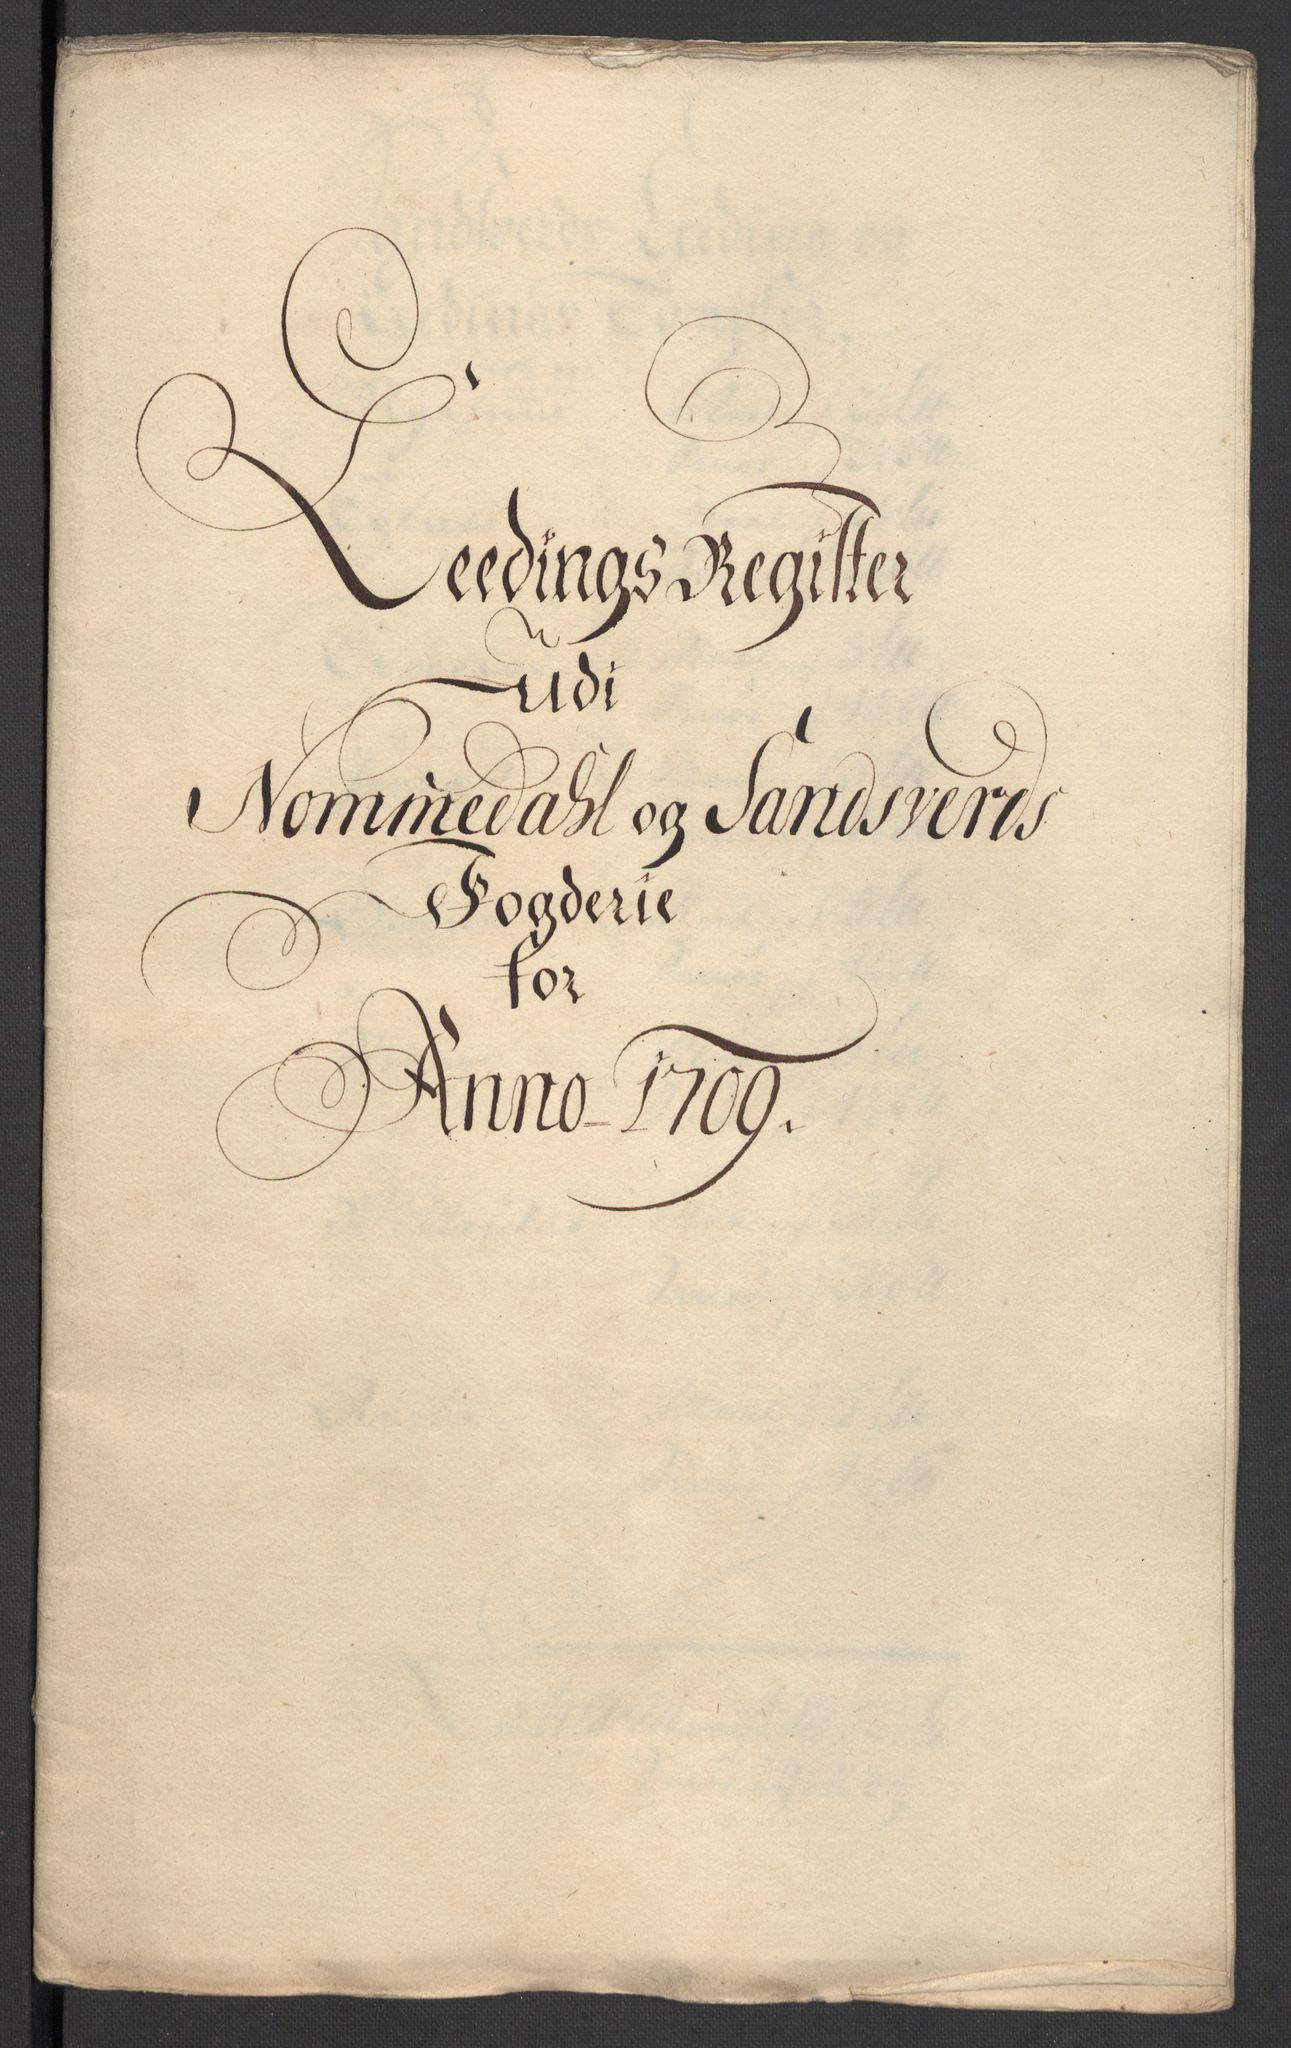 Leedings Register
Udi
Nommedahl og Sandsverds
Fogderie
for
Anno 1709.